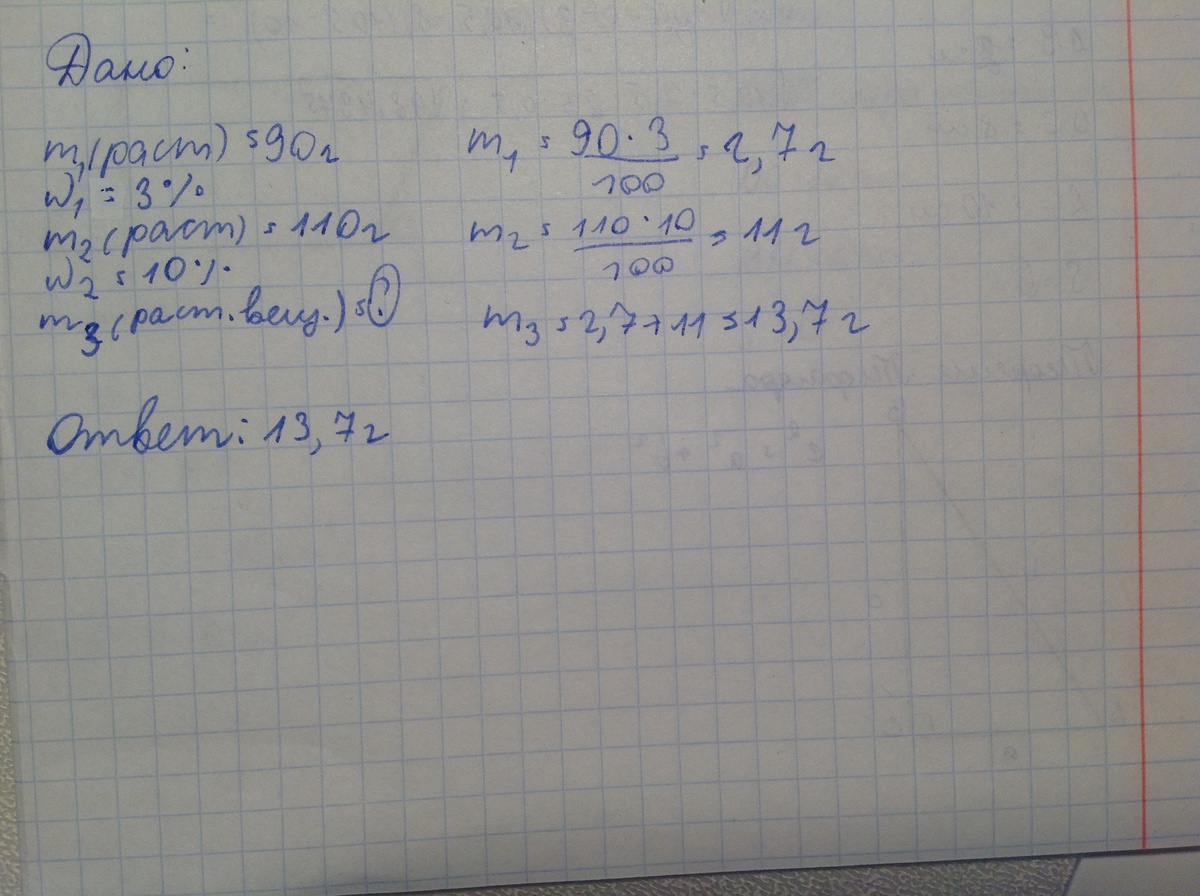 Дано:
m₁(раст) = 90г
w₁ = 3%
m₂(раст) = 110г
w₂ = 10%
m₃(раст. вещ.) = ?
m₁ = 90·3/100 = 2,7г
m₂ = 110·10/100 = 11г
m₃ = 2,7+11 = 13,7г
Ответ: 13,7г